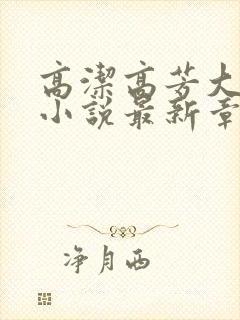 高潔高芳大
小說最新章
净月西